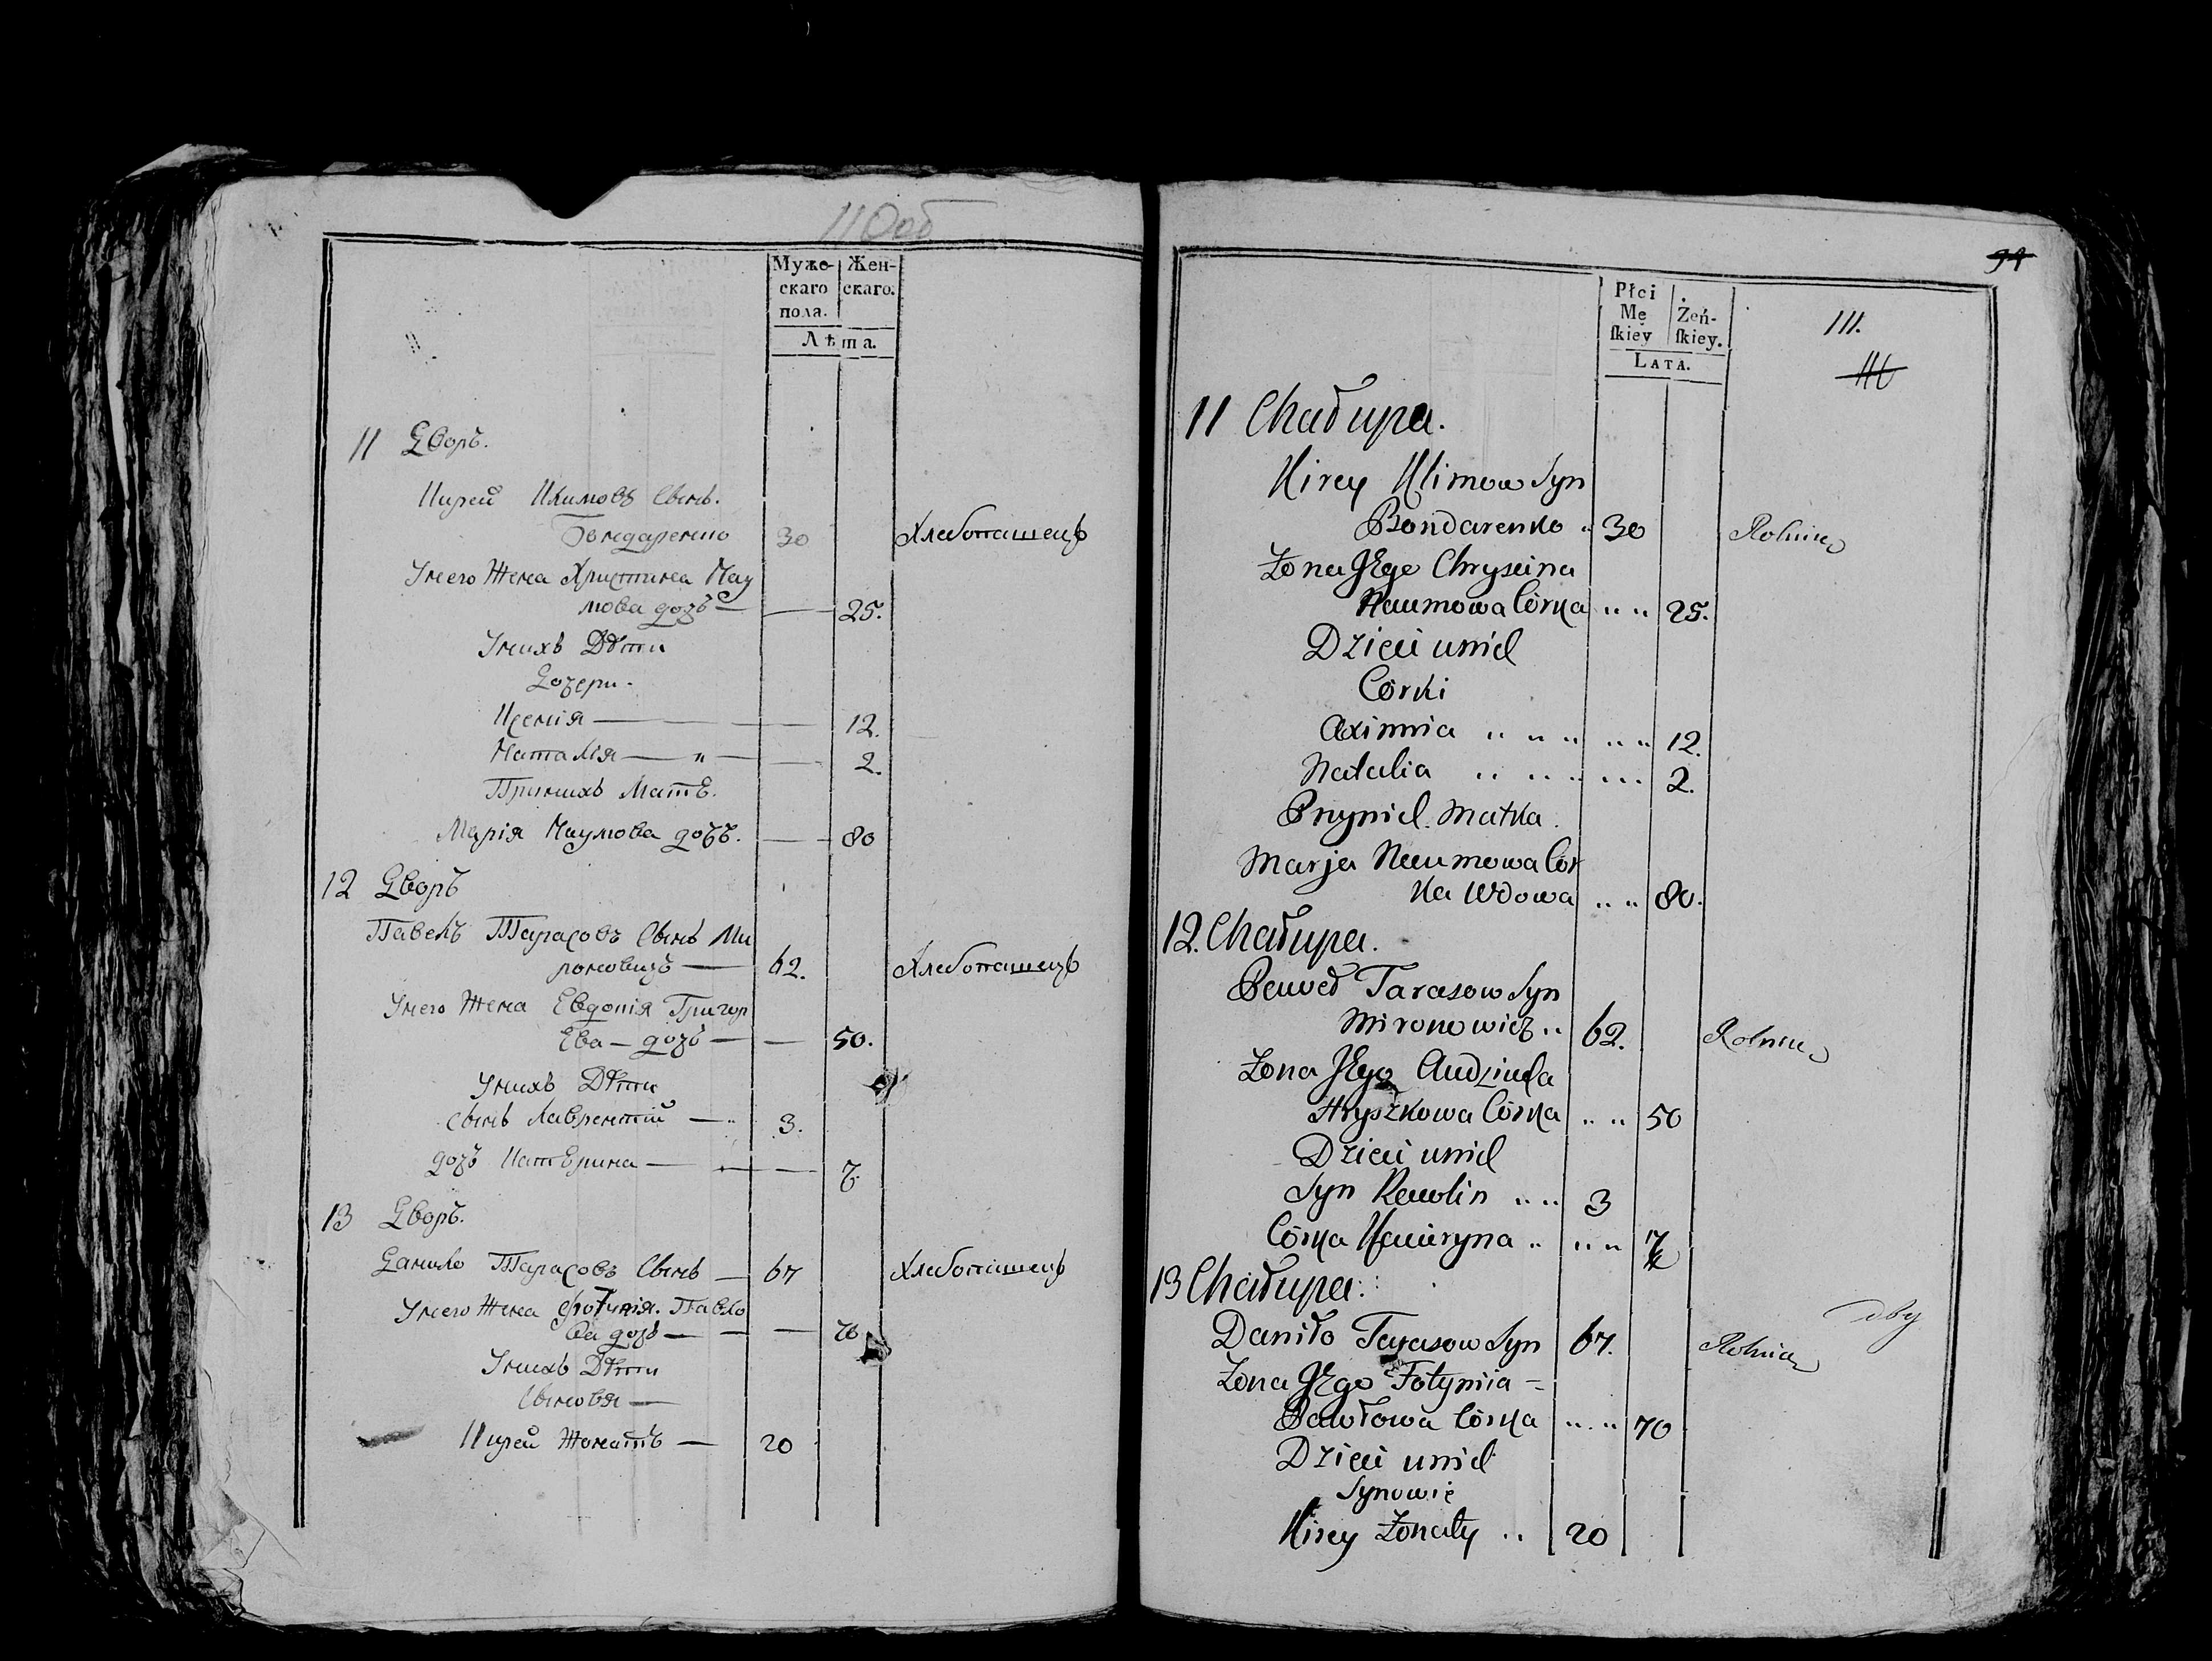 110об
Муже-
скаго
пола.
Жен-
скаго.
Лѣта.
11 Дворъ.
Кирей Климовъ Сынъ.
Бондаренко 30 Хлебопашецъ
У него Жена Христина Нау
мова дочь — — 25.
У нихъ Дѣти
Дочери.
Ксенія — — — 12.
Наталія — " — — 2.
При нихъ Мать.
Марія Наумова дочь. — 80
12 Дворъ
Павелъ Тарасовъ Сынъ Ми
роновичъ — 62. Хлебопашецъ
У него Жена Евдокія Григор
Ева — дочь — — 50.
У нихъ Дѣти
Сынъ Лаврентій — .. 3.
дочь Катерина — — — 7.
13 Дворъ.
Данило Тарасовъ Сынъ — 67 Хлебопашецъ
У него Жена Фотинія. Павло
ва дочь — — — 70
У нихъ Дѣти
Сыновья —
Кирей Женатъ — 20
94
Płci
Mę
ſkiey
Żeń-
ſkiey.
LATA.
111.
11 Chałupa.
Kirey Klimow Syn
Bondarenko .. 30 Rolnik
Żona Jego Chryscina
Naumowa Córka .. .. 25.
Dzieci u nich
Córki
Axinnia .. .. .. .. .. 12.
Natalia .. .. .. ... 2.
Przy nich. Matka.
Marja Naumowa Cór
ka Wdowa .. .. 80.
12. Chałupa.
Paweł Tarasow Syn
Mironowicz .. 62. Rolnik
Żona Jego Audziuda
Hryszkowa Córka .. .. 50
Dzieci u nich
Syn Ławlin .. .. 3
Córka Kaciryna .. .. .. 7
13 Chałupa.
Daniło Tarasow Syn 67. Rolnik
Żona Jego Fotynia –
Pawłowa Córka .. .. 70
Dzieci u nich
Synowie
Kirey Żonaty .. 20